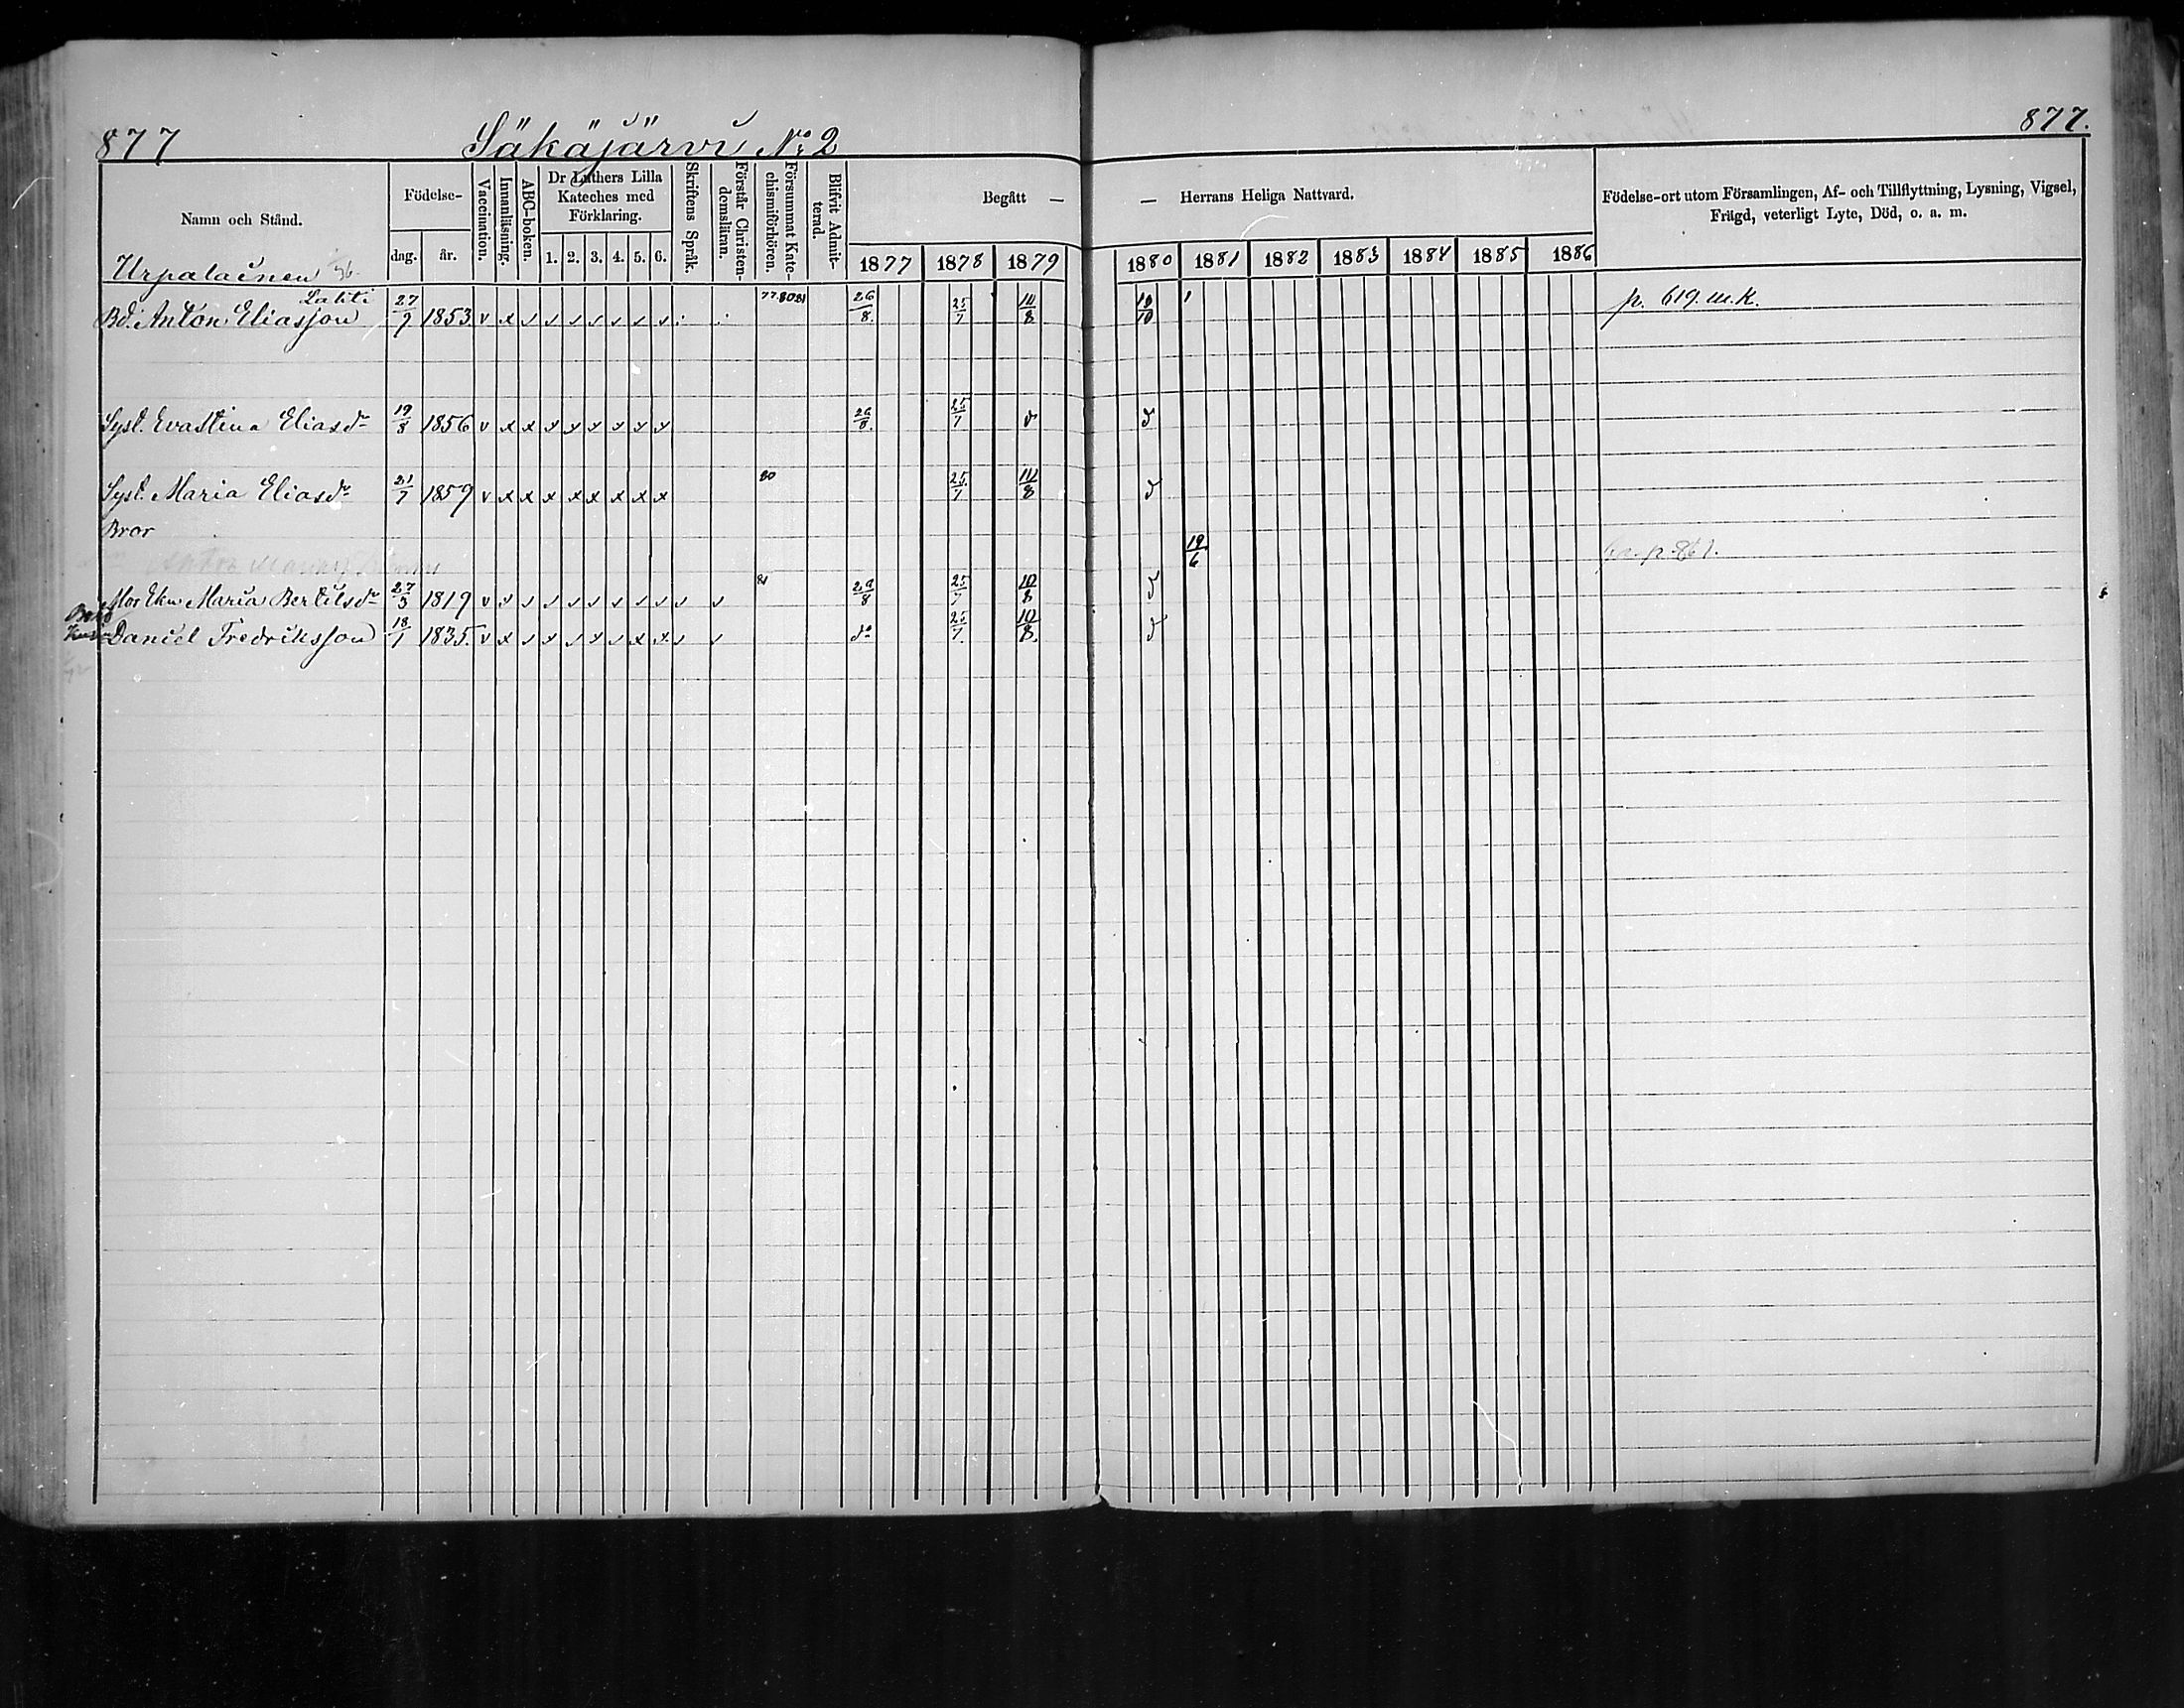 877 Säkäjärvi No 2 877.
Namn och Stånd. Födelse- dag. år. Vaccination. Innanläsning. ABC-boken. Dr Luthers Lilla Kateches med Förklaring. 1. 2. 3. 4. 5. 6. Skriftens Språk. Förstår Christendomsläran. Försummat Katechismiförhören. Blifvit Admitterad. Begått — — Herrans Heliga Nattvard. Födelse-ort utom Församlingen, Af- och Tillflyttning, Lysning, Vigsel, Frägd, veterligt Lyte, Död, o. a. m.
1877 1878 1879 1880 1881 1882 1883 1884 1885 1886
Urpalainen
Bd. Anton Eliasson 27/9 1853 v x 77.80.81 26/8. 25/7 10/10 p. 619. m.k.
Syst. Evastina Eliasdr 19/8 1856 v x x 26/8. 25/7 d d
Syst. Maria Eliasdr 21/7 1859 v x x x x x x x x 80 25/7 d
Bror
19/6
Mor Ekn Maria Bertilsdr 27/3 1819 v 81 25/7 10/8 d
Daniel Fredriksson 18/1 1835. v x do 25/7. 10/8. d